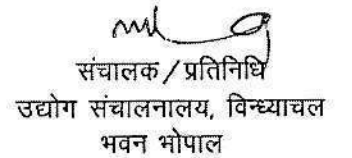 संचालक / प्रतिनिधि
उद्योग संचालनालय, विन्ध्याचल
भवन भोपाल